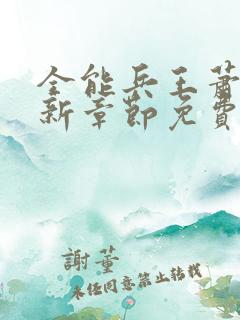 全能兵王蕭
新章節免費
謝董
未經同意禁止轉載